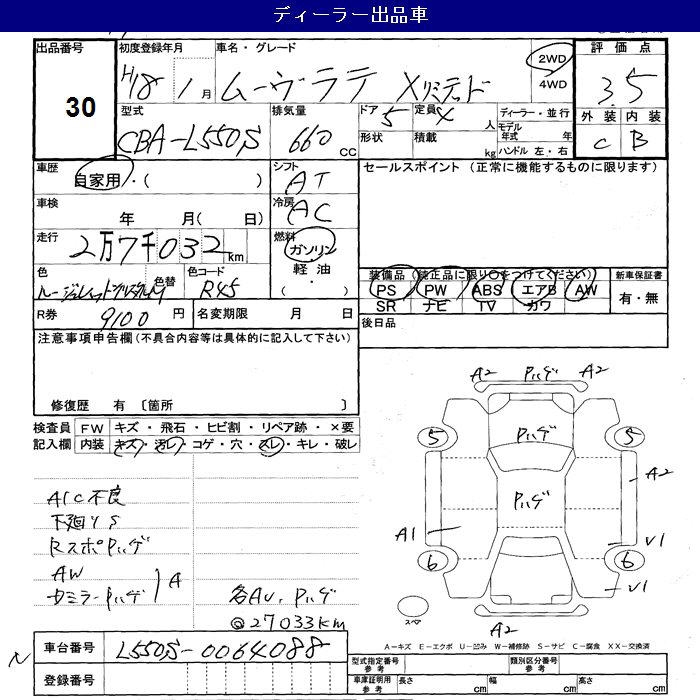 ディーラー出品車
出品番号 30
初度登録年月 H18 1月
車名・グレード ムーヴラテ Xリミテッド
2WD
4WD
評価点 3.5
型式 CBA-L550S
排気量 660 CC
ドア 5
定員 4 人
ディーラー・並行
モデル年式 年
ハンドル 左・右
形状
積載 kg
外装 内装
C B
車歴 自家用・( )
シフト AT
セールスポイント (正常に機能するものに限ります)
車検 年 月( 日)
冷房 AC
走行 2万7千032km
燃料 ガソリン
軽油
・( )
色
色替
色コード R45
装備品 (純正品に限り○をつけてください)
PS PW ABS エアB AW
SR ナビ TV カワ
新車保証書
有・無
R券 9100円
名変期限 月 日
後日品
注意事項申告欄 (不具合内容等は具体的に記入して下さい)
修復歴 有 〔箇所 〕
検査員記入欄
FW キズ・飛石・ヒビ割・リペア跡・×要
内装 キズ・汚レ・コゲ・穴・スレ・キレ・破レ
A/C不良
下廻りS
RスポPハゲ
AW
ミラーPハゲ
A
各AU, Pハゲ
@27033km
A2 Pハゲ A2
5 Pハゲ 5
Pハゲ A2
A1 V1
6 6
V1
スペア
A2
A-キズ E-エクボ U-凹み W-補修跡 S-サビ C-腐食 XX-交換済
車台番号 L550S-0064088
登録番号
型式指定番号 参考
類別区分番号 参考
車庫証明用 参考
長さ cm 幅 cm 高さ cm